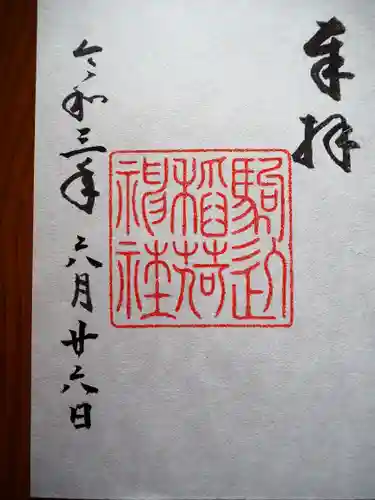 奉拝
駒込
稲荷
神社
令和三年 六月廿六日